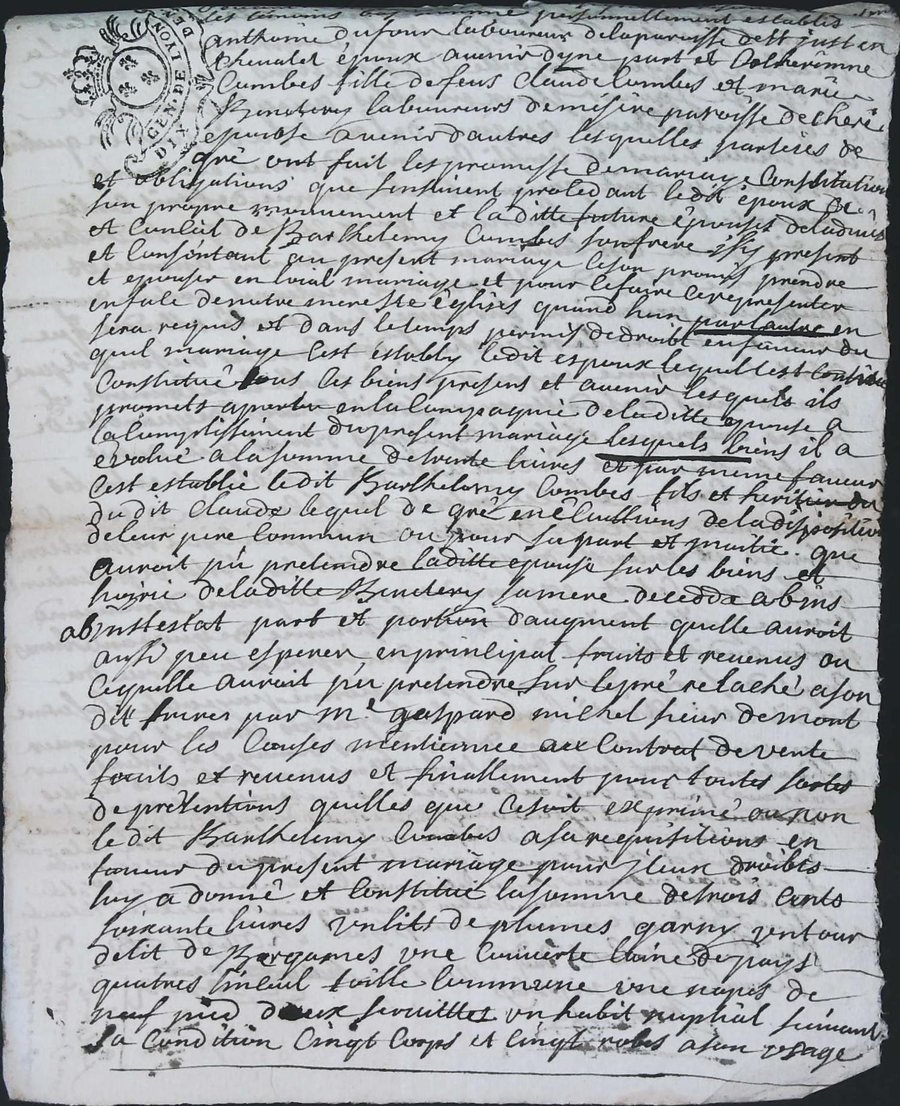 les témoins personnellement establis
anthoine dufour laboureur de la paroisse de st just en
chevalet époux avenir dyne part et
Combes fille de feus Claude Combes et marie
laboureurs de misere paroisse de cheri
epouse avenir d'autres lesquelles parties de
GEN DE LYON
DIX
gré ont fait les promesse de mariage Constitution
et obligations que sensuivent procedant ledit époux de
son propre mouvement et la ditte future épouse de ladvis
et Conseil de Barthelemy Combes son frere present
et Consentant au present mariage se son promis prendre
et epouser en loial mariage et pour le faire se representer
en fale de notre mere ste église quand lun par lautre en
sera requis et dans le temps permis de droibt en faveur du
quel mariage sest establly ledit espoux lequel sest
Constitué tous ses biens presens et avenir lesquels ils
promett aporter en la Compagnie de laditte epouse a
lacomplissement du present mariage lesquels biens il a
evalué a la somme de trante livres et par meme faveur
Cest establie ledit Barthelemy Combes fils et heritier
du dit Claude lequel de gré en de la disposition
de leur pere Commun ou pour sa part et moitié que
auroit pu pretendre laditte epouse sur les biens et
hoirie de laditte sa mere decedée abins
ab instestat part et portion daugment quelle auroit
aussi peu esperer en principal fruits et revenus ou
Cequelle auroit pu pretendre sur le pré relaché a son
dit frere par mr gaspard michel sieur demont
pour les Causes mentionnee aux Contrat de vente
fruits et revenus et finallement pour toutes sortes
de prétentions quilles que Ce soit exprimé ou non
le dit Barthelemy Combes a sa requisitions en
faveur du present mariage pour yceux droibts
luy a donné et Constitué la somme de trois Cents
soixante livres un lit de plumes garny un tour
de lit de Bergames une Couverte laine de pays
quatres linceul toille Commune une napes de
neuf pied deux un habit nuptial suivant
sa Condition Cingt Corps et Cingt robes a son usage